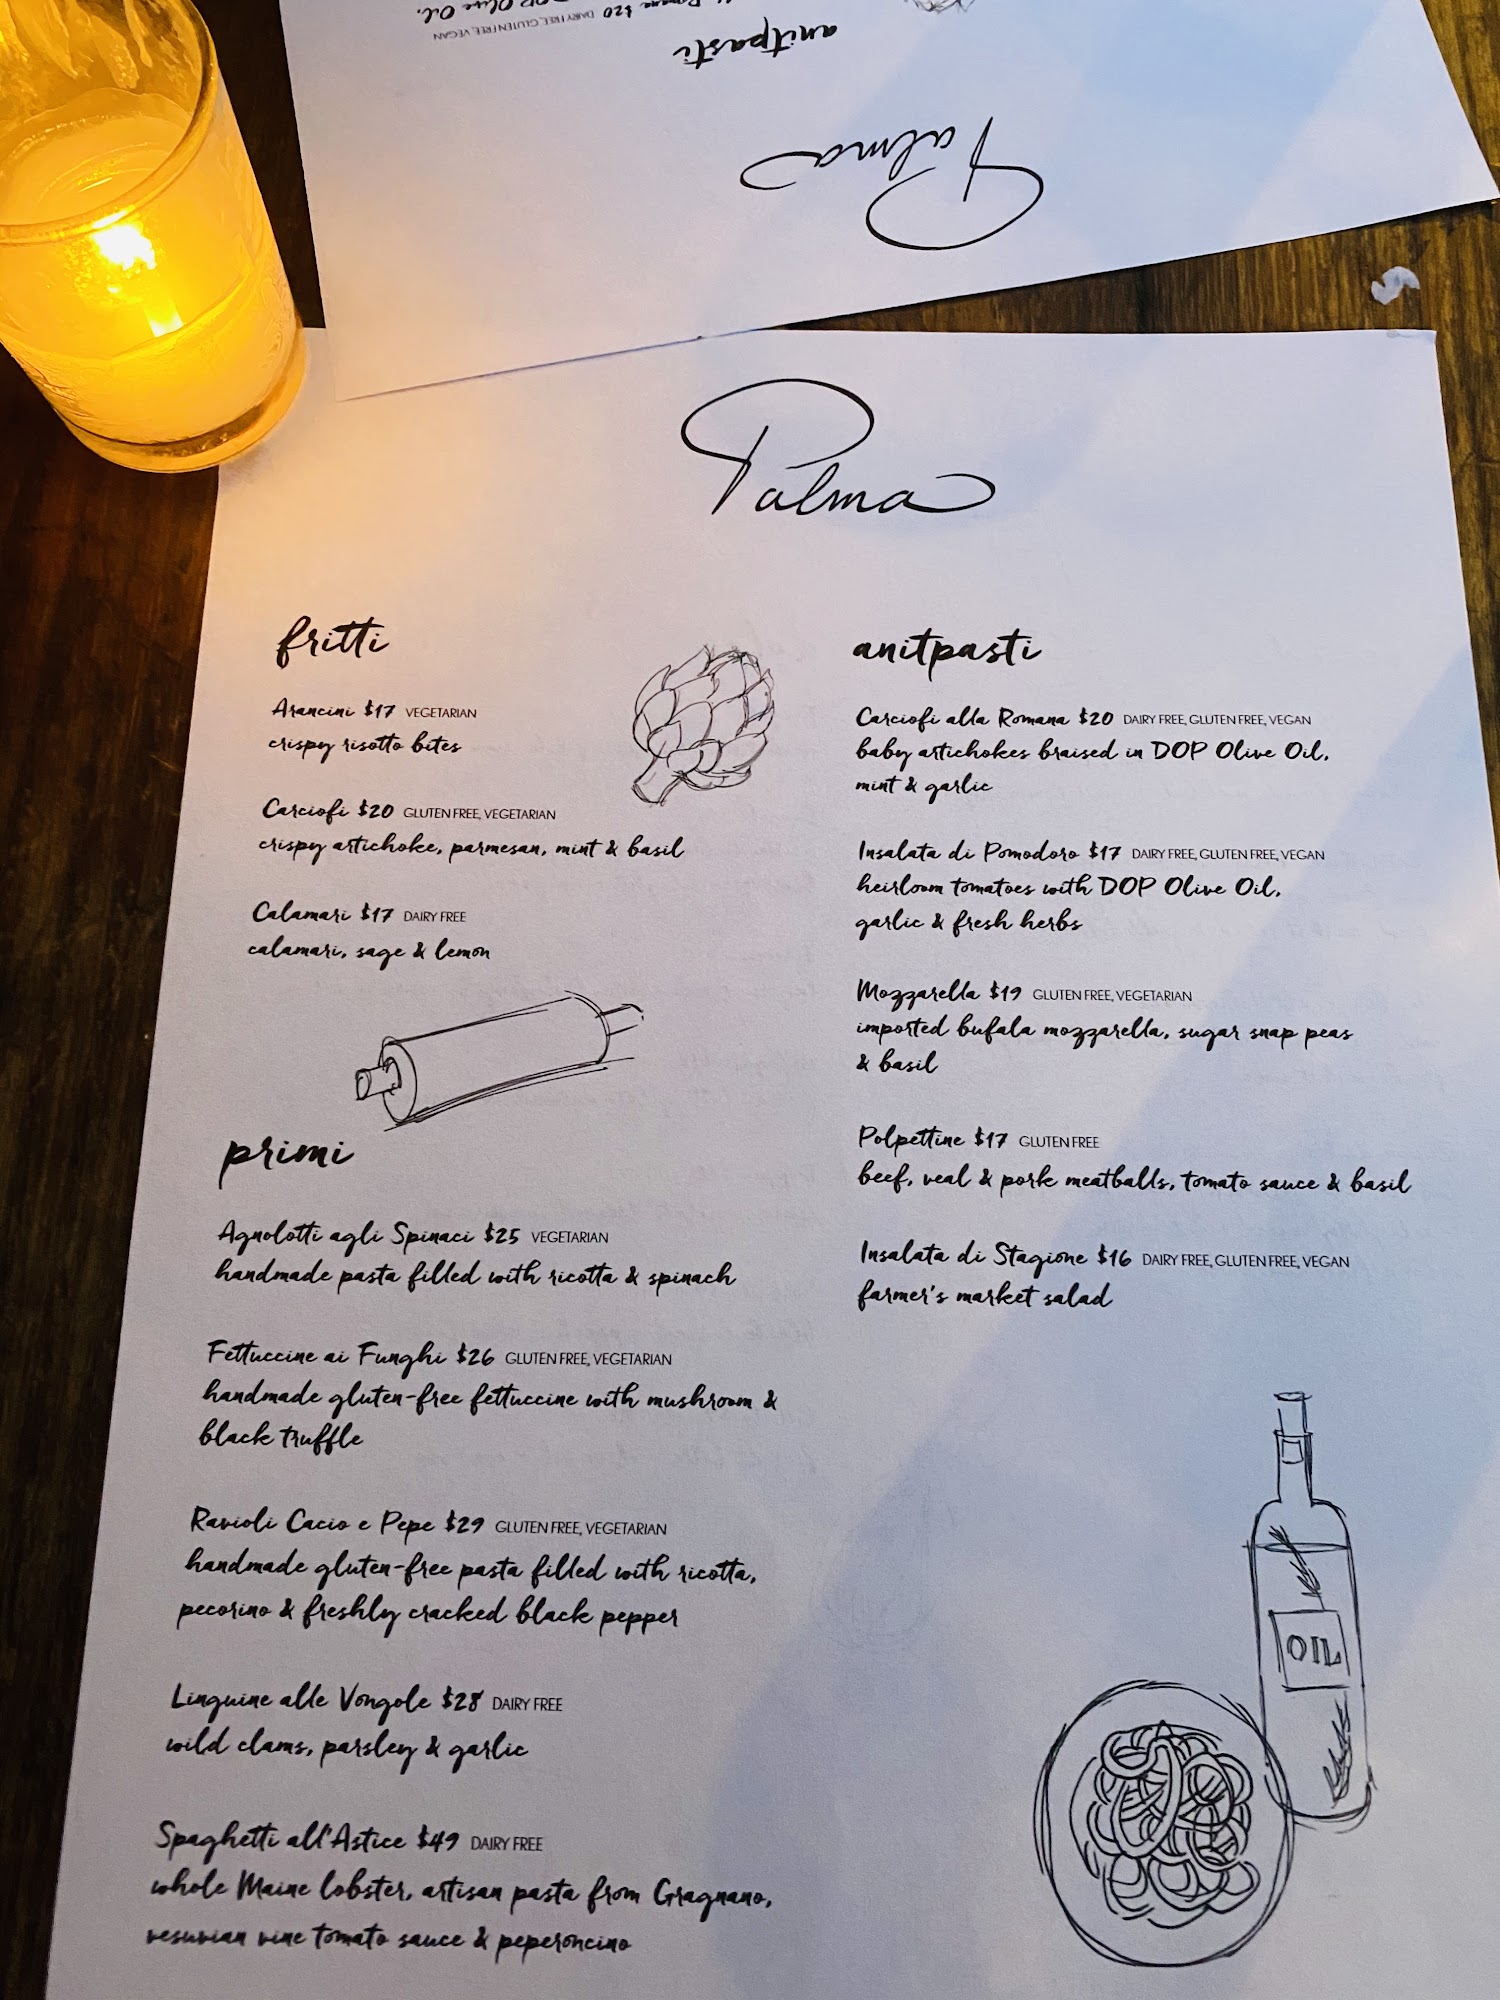 DAIRY FREE, GLUTEN FREE, VEGAN
anitpasti
Palma
Palma
fritti
Arancini $17 VEGETARIAN
crispy risotto bites
Carciofi $20 GLUTEN FREE, VEGETARIAN
crispy artichoke, parmesan, mint & basil
Calamari $17 DAIRY FREE
calamari, sage & lemon
primi
Agnolotti agli Spinaci $25 VEGETARIAN
handmade pasta filled with ricotta & spinach
Fettuccine ai Funghi $26 GLUTEN FREE, VEGETARIAN
handmade gluten-free fettuccine with mushroom &
black truffle
Ravioli Cacio e Pepe $29 GLUTEN FREE, VEGETARIAN
handmade gluten-free pasta filled with ricotta,
pecorino & freshly cracked black pepper
Linguine alle Vongole $28 DAIRY FREE
wild clams, parsley & garlic
Spaghetti all'Astice $49 DAIRY FREE
whole Maine lobster, artisan pasta from Gragnano,
vesuvian vine tomato sauce & peperoncino
anitpasti
Carciofi alla Romana $20 DAIRY FREE, GLUTEN FREE, VEGAN
baby artichokes braised in DOP Olive Oil,
mint & garlic
Insalata di Pomodoro $17 DAIRY FREE, GLUTEN FREE, VEGAN
heirloom tomatoes with DOP Olive Oil,
garlic & fresh herbs
Mozzarella $19 GLUTEN FREE, VEGETARIAN
imported bufala mozzarella, sugar snap peas
& basil
Polpettine $17 GLUTEN FREE
beef, veal & pork meatballs, tomato sauce & basil
Insalata di Stagione $16 DAIRY FREE, GLUTEN FREE, VEGAN
farmer's market salad
OIL